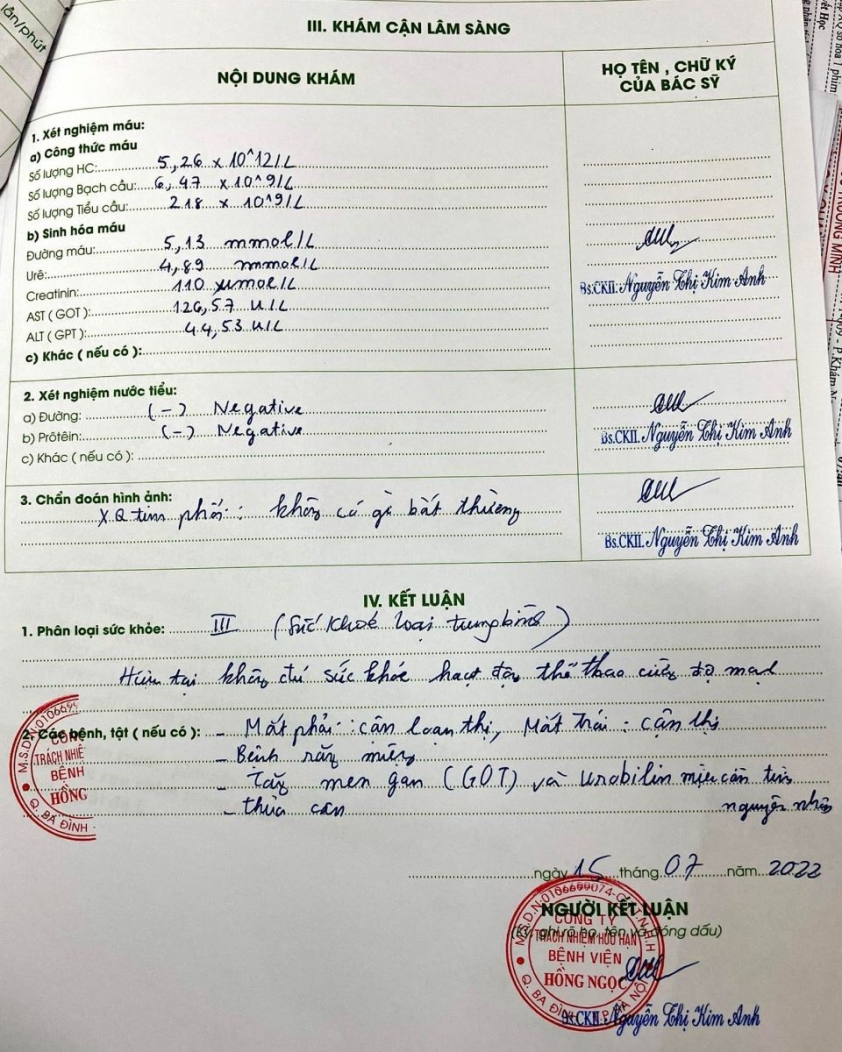 lần/phút
III. KHÁM CẬN LÂM SÀNG
NỘI DUNG KHÁM
HỌ TÊN , CHỮ KÝ
CỦA BÁC SỸ
1. Xét nghiệm máu:
a) Công thức máu
Số lượng HC: 5,26 x 10^12/L
Số lượng Bạch cầu: 6,47 x 10^9/L
Số lượng Tiểu cầu: 218 x 10^9/L
b) Sinh hóa máu
Đường máu: 5,13 mmol/L
Urê: 4,89 mmol/L
Creatinin: 110 µmol/L
AST ( GOT ): 126,57 U/L
ALT ( GPT ): 44,53 U/L
c) Khác ( nếu có ):
Bs.CKII. Nguyễn Thị Kim Anh
2. Xét nghiệm nước tiểu:
a) Đường: (-) Negative
b) Prôtêin: (-) Negative
c) Khác ( nếu có ):
Bs.CKII. Nguyễn Thị Kim Anh
3. Chẩn đoán hình ảnh:
XQ tim phổi: không có gì bất thường
Bs.CKII. Nguyễn Thị Kim Anh
IV. KẾT LUẬN
1. Phân loại sức khỏe: III (Sức khoẻ loại trung bình)
Hiện tại không đủ sức khỏe hoạt động thể thao cường độ mạnh
2. Các bệnh, tật ( nếu có ): - Mắt phải: cận loạn thị, Mắt Trái: cận thị
- Bệnh răng miệng
- Tăng men gan (GOT) và Urobilin niệu cần tìm
nguyên nhân
- thừa cân
M.S.D.N:010669
CÔNG
TRÁCH NHIỆ
BỆNH
HỒNG
Q. BA ĐÌNH
ngày 15 tháng 07 năm 2022
NGƯỜI KẾT LUẬN
(Ký, ghi rõ họ, tên và đóng dấu)
M.S.D.N:0106699074-C.T.T.N.H.H
CÔNG TY
TRÁCH NHIỆM HỮU HẠN
BỆNH VIỆN
HỒNG NGỌC
Q. BA ĐÌNH - T.P HÀ NỘI
Bs.CKII. Nguyễn Thị Kim Anh
TRƯỜNG MINH